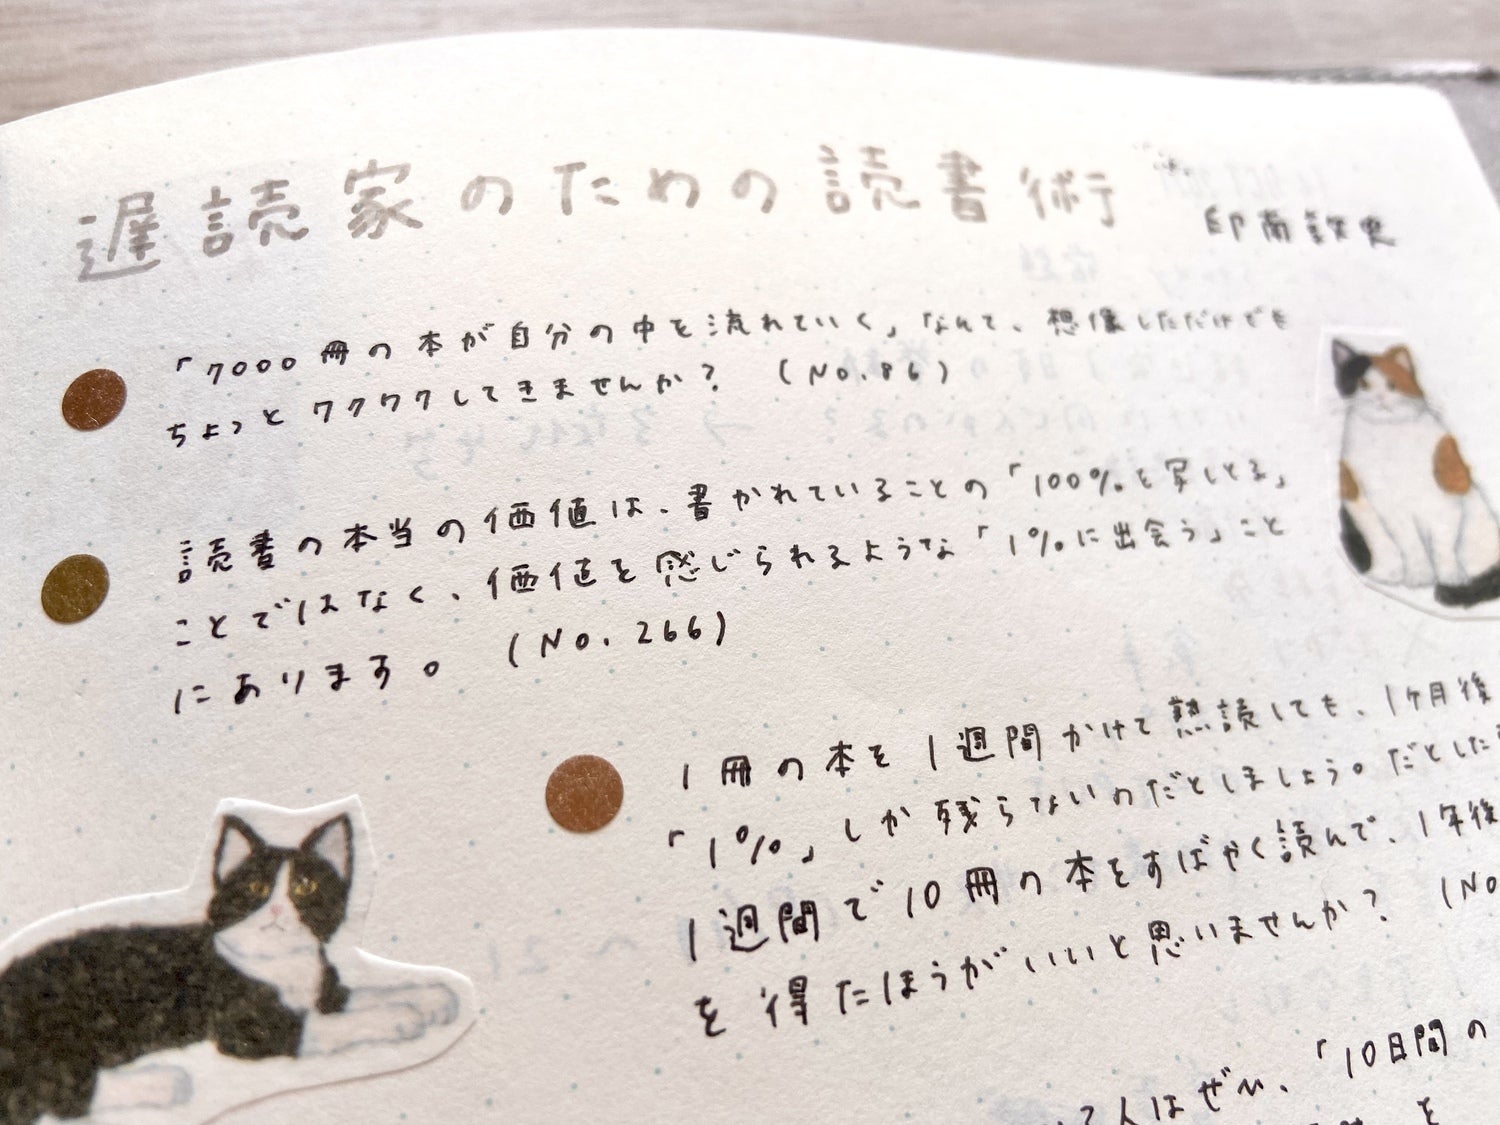 遅読家のための読書術
印南敦史
「7000冊の本が自分の中を流れていく」なんて、想像しただけでも
ちょっとワクワクしてきませんか？ (No.86)
読書の本当の価値は、書かれていることの「100%を写しとる」
ことではなく、価値を感じられるような「1%に出会う」こと
にあります。 (No. 266)
1冊の本を1週間かけて熟読しても、1ヶ月後
「1%」しか残らないのだとしましょう。だとした
1週間で10冊の本をすばやく読んで、1年後
を得たほうがいいと思いませんか？ (No
人はぜひ、「10日間の
を